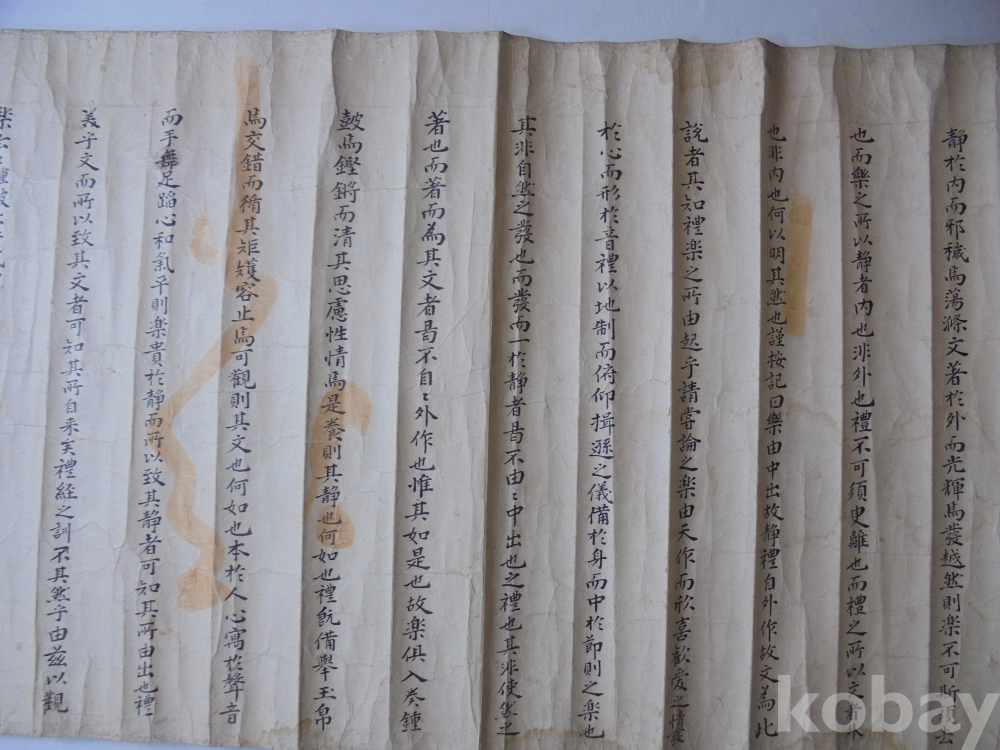 静於内而邪穢焉蕩滌文著於外而光輝焉發越然則楽不可斯須去
也而樂之所以静者内也非外也禮不可須臾離也而禮之所以文者外
也非内也何以明其然也謹按記曰樂由中出故静禮自外作故文為此
説者其知禮楽之所由起乎請甞論之楽由天作而欣喜歡愛之情發
於心而形於音禮以地制而俯仰揖遜之儀備於身而中於節則之楽也
其非自然之發也而發而一於静者曷不由〻中出也之禮也其非使然之
著也而著而為其文者曷不自〻外作也惟其如是也故楽俱入奏鍾
鼓焉鏗鏘而清其思慮性情焉是養則其静也何如也禮既備舉玉帛
焉交錯而循其矩矱容止焉可觀則其文也何如也本於人心寓於聲音
而手舞足蹈心和氣平則楽貴於静而所以致其静者可知其所由出也禮
美乎文而所以致其文者可知其所自来矣禮経之訓不其然乎由茲以觀
楽云〻鍾鼓
kobay